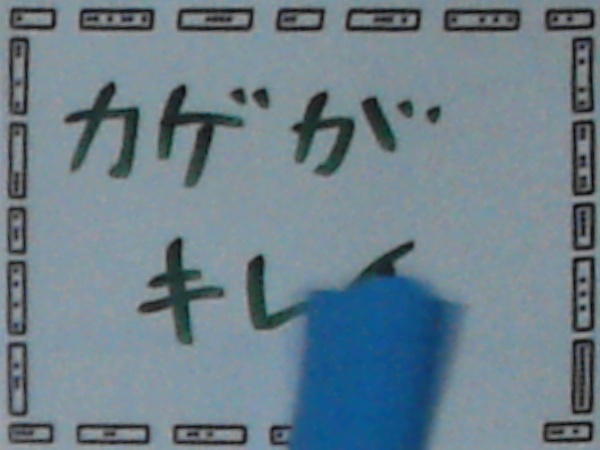 カゲが
キレ